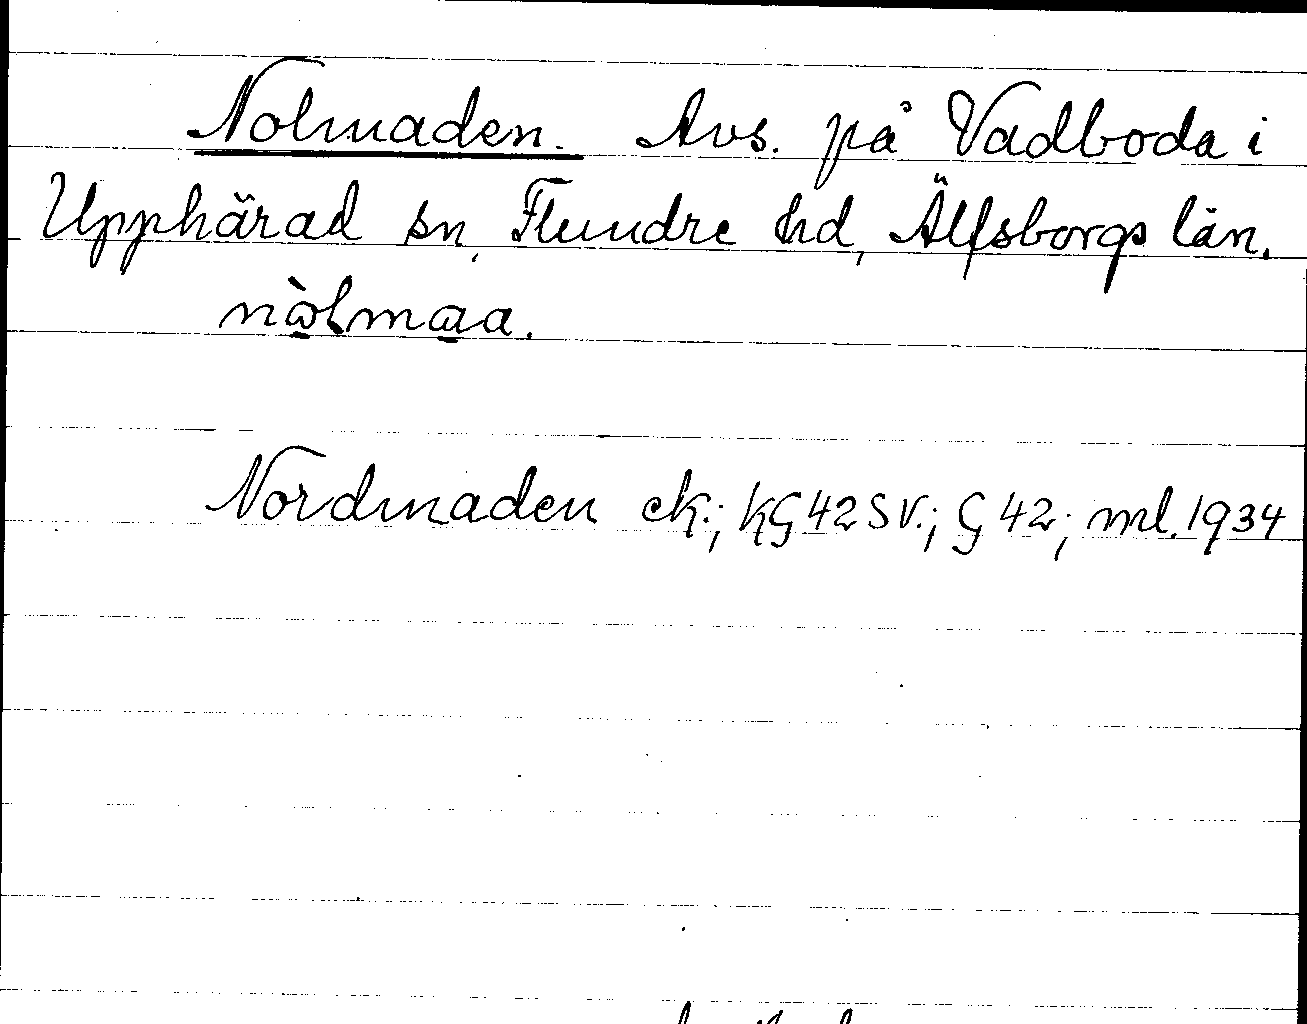 Nolmaden. Avs. på Vadboda i
Upphärad sn, Flundre hd, Älfsborgs län.
nòlmaa.
Nordmaden ek.; KG 42 SV.; G 42; ml. 1934